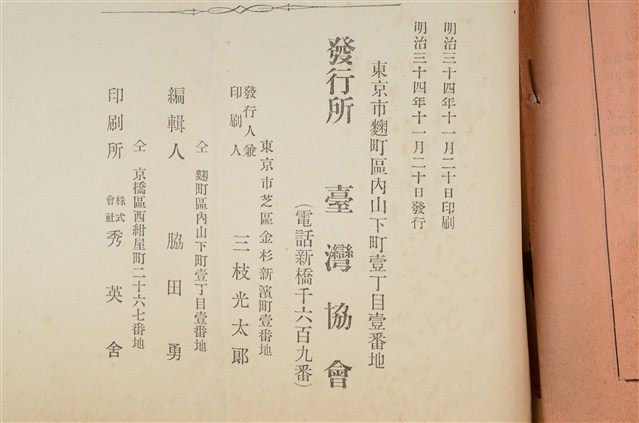 明治三十四年十一月二十日印刷
明治三十四年十一月二十日發行
東京市麴町區內山下町壹丁目壹番地
發行所 臺灣協會
(電話新橋千六百九番)
東京市芝區金杉新濱町壹番地
發行人兼印刷人 三枝光太郞
仝 麴町區內山下町壹丁目壹番地
編輯人 脇田勇
仝 京橋區西紺屋町二十六七番地
印刷所 株式會社 秀英舍